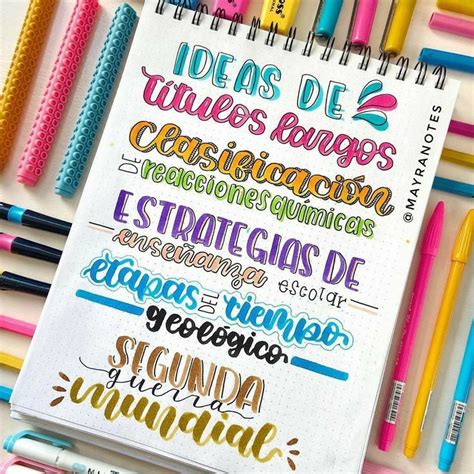 IDEAS DE
títulos largos
Clasificación
DE reacciones químicas
ESTRATEGIAS DE
enseñanza escolar
etapas DE tiempo
geológico
SEGUNDA
guerra
mundial
@MAYRANOTES